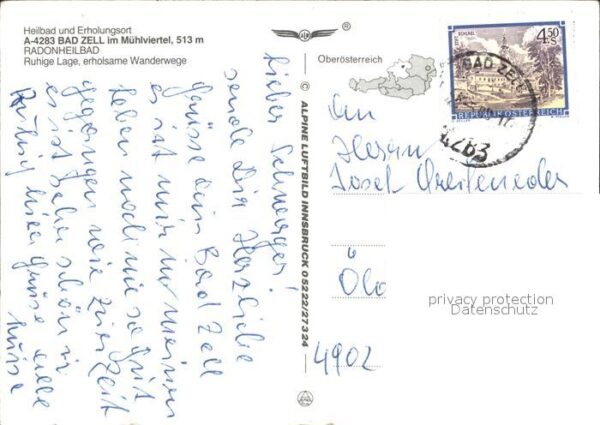 Heilbad und Erholungsort
A-4283 BAD ZELL im Mühlviertel, 513 m
RADONHEILBAD
Ruhige Lage, erholsame Wanderwege
Oberösterreich
© ALPINE LUFTBILD INNSBRUCK 05222/27324
STIFT
4.50
S
REPUBLIK ÖSTERREICH
BAD ZELL
4283
An
Herrn
Josef
4902
Lieber Schwager!
sende Dir Herzliche
Grüsse aus Bad Zell
es ist mir in meinem
Leben noch nie so gut
gegangen wie zur Zeit
es ist sehr schön u.
ruhig hier Grüsse alle
privacy protection
Datenschutz